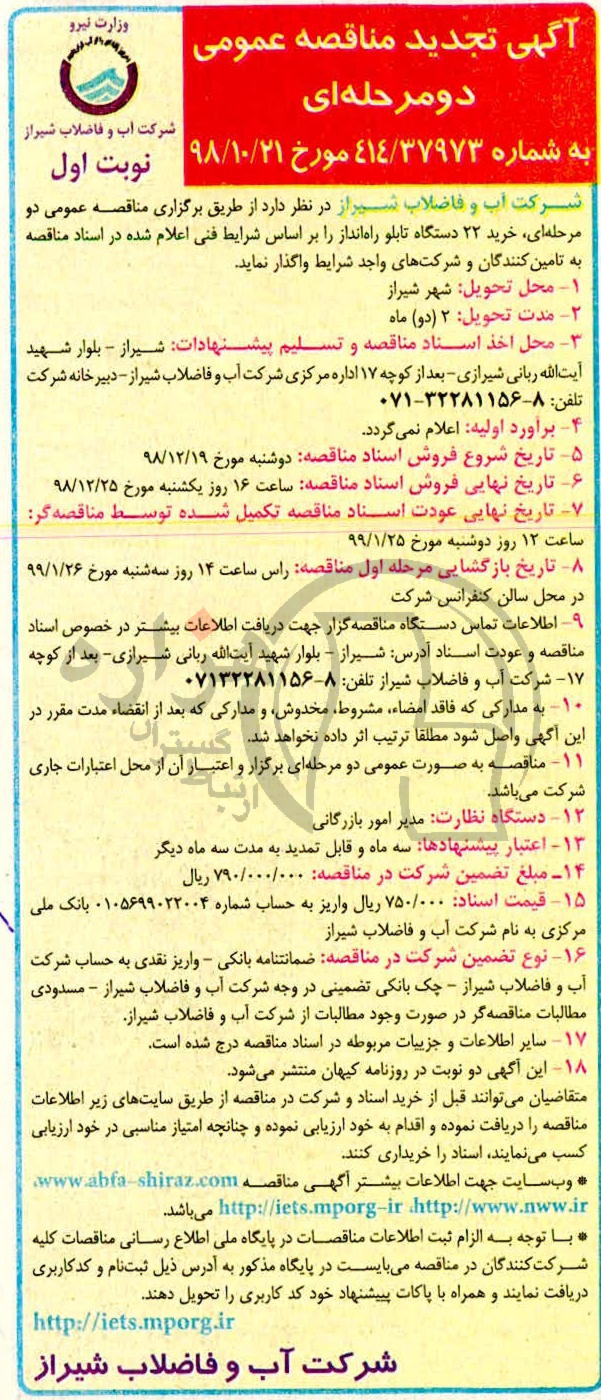 وزارت نیرو
شرکت آب و فاضلاب شیراز
نوبت اول
آگهی تجدید مناقصه عمومی
دو مرحله‌ای
به شماره ۴۱۴/۳۷۹۷۳ مورخ ۹۸/۱۰/۲۱
شــرکت آب و فاضلاب شــیراز در نظر دارد از طریق برگزاری مناقصــه عمومی دو
مرحله‌ای، خرید ۲۲ دستگاه تابلو راه‌انداز را بر اساس شرایط فنی اعلام شده در اسناد مناقصه
به تامین‌کنندگان و شرکت‌های واجد شرایط واگذار نماید.
۱- محل تحویل: شهر شیراز
۲- مدت تحویل: ۲ (دو) ماه
۳- محل اخذ اســناد مناقصه و تســلیم پیشــنهادات: شــیراز - بلوار شــهید
آیت‌الله ربانی شیرازی- بعد از کوچه ۱۷ اداره مرکزی شرکت آب و فاضلاب شیراز- دبیرخانه شرکت
تلفن: ۸-۳۲۲۸۱۱۵۶-۰۷۱
۴- برآورد اولیه: اعلام نمی‌گردد.
۵- تاریخ شروع فروش اسناد مناقصه: دوشنبه مورخ ۹۸/۱۲/۱۹
۶- تاریخ نهایی فروش اسناد مناقصه: ساعت ۱۶ روز یکشنبه مورخ ۹۸/۱۲/۲۵
۷- تاریخ نهایی عودت اســناد مناقصه تکمیل شــده توســط مناقصه‌گر:
ساعت ۱۲ روز دوشنبه مورخ ۹۹/۱/۲۵
۸- تاریخ بازگشایی مرحله اول مناقصه: راس ساعت ۱۴ روز سه‌شنبه مورخ ۹۹/۱/۲۶
در محل سالن کنفرانس شرکت
۹- اطلاعات تماس دســتگاه مناقصه‌گزار جهت دریافت اطلاعات بیشــتر در خصوص اسناد
مناقصه و عودت اسـناد آدرس: شـیراز - بلوار شهید آیت‌الله ربانی شـیرازی- بعد از کوچه
۱۷- شرکت آب و فاضلاب شیراز تلفن: ۸-۰۷۱۳۲۲۸۱۱۵۶
۱۰- به مدارکی که فاقد امضاء، مشروط، مخدوش، و مدارکی که بعد از انقضاء مدت مقرر در
این آگهی واصل شود مطلقا ترتیب اثر داده نخواهد شد.
۱۱- مناقصــه به صــورت عمومی دو مرحله‌ای برگزار و اعتبــار آن از محل اعتبارات جاری
شرکت می‌باشد.
۱۲- دستگاه نظارت: مدیر امور بازرگانی
۱۳- اعتبار پیشنهادها: سه ماه و قابل تمدید به مدت سه ماه دیگر
۱۴- مبلغ تضمین شرکت در مناقصه: ۷۹۰/۰۰۰/۰۰۰ ریال
۱۵- قیمت اسناد: ۷۵۰/۰۰۰ ریال واریز به حساب شماره ۰۱۰۵۶۹۹۰۲۲۰۰۴ بانک ملی
مرکزی به نام شرکت آب و فاضلاب شیراز
۱۶- نوع تضمین شرکت در مناقصه: ضمانتنامه بانکی - واریز نقدی به حساب شرکت
آب و فاضلاب شیراز - چک بانکی تضمینی در وجه شرکت آب و فاضلاب شیراز - مسدودی
مطالبات مناقصه‌گر در صورت وجود مطالبات از شرکت آب و فاضلاب شیراز.
۱۷- سایر اطلاعات و جزییات مربوطه در اسناد مناقصه درج شده است.
۱۸- این آگهی دو نوبت در روزنامه کیهان منتشر می‌شود.
متقاضیان می‌توانند قبل از خرید اسناد و شرکت در مناقصه از طریق سایت‌های زیر اطلاعات
مناقصه را دریافت نموده و اقدام به خود ارزیابی نموده و چنانچه امتیاز مناسبی در خود ارزیابی
کسب می‌نمایند، اسناد را خریداری کنند.
* وب‌ســایت جهت اطلاعات بیشــتر آگهــی مناقصــه www.abfa-shiraz.com،
http://www.nww.ir، http://iets.mporg-ir می‌باشد.
* بــا توجه بــه الزام ثبت اطلاعات مناقصــات در پایگاه ملی اطلاع رســانی مناقصات کلیه
شــرکت‌کنندگان در مناقصه می‌بایســت در پایگاه مذکور به آدرس ذیل ثبت‌نام و کدکاربری
دریافت نمایند و همراه با پاکات پییشنهاد خود کد کاربری را تحویل دهند.
http://iets.mporg.ir
شرکت آب و فاضلاب شیراز